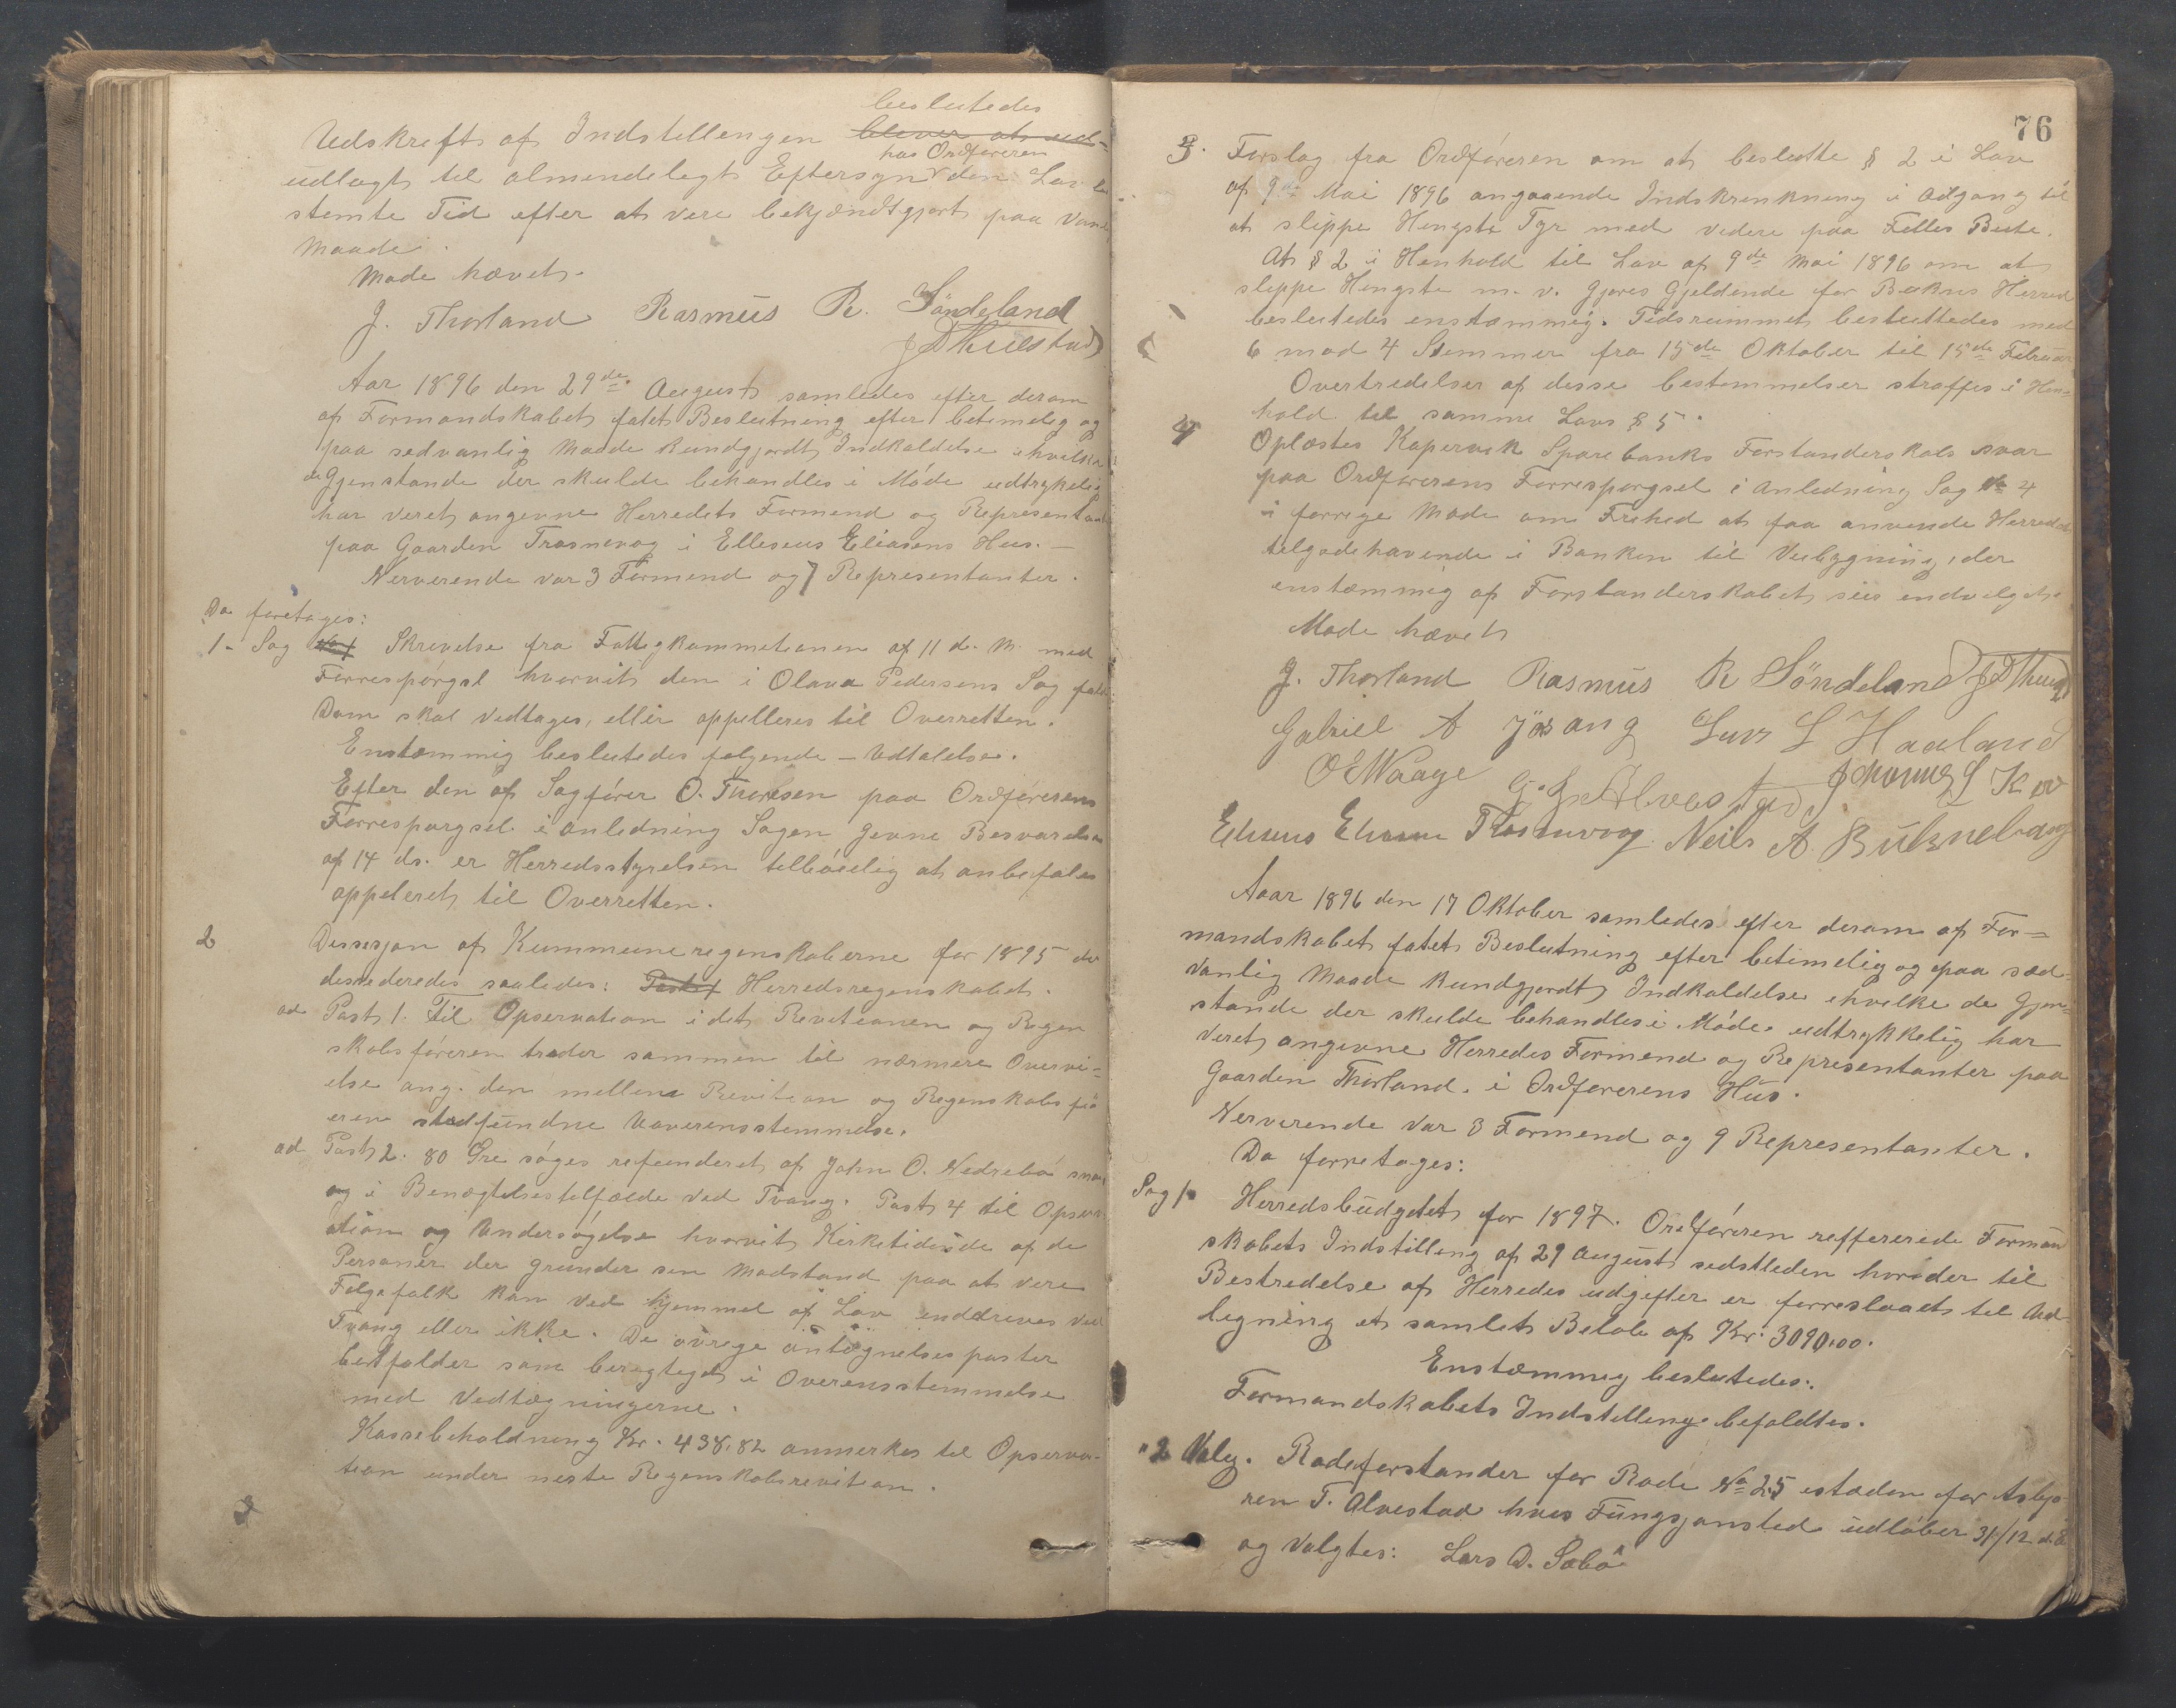 beslutedes
Udskrift af Indstellengen blever at ud-
hos Ordføreren
udlagt til almendelegt Eftersyn den Lav be
stemte Tid efter at vere bekjændtgjort paa Van
Maade.
Møde hævet.
J. Thorland Rasmus R. Søndeland
Aar 1896 den 29de August samledes efter derom
af Formandskabet fatet Beslutning efter betimelig og
paa sedvanlig Maade kundgjordt Indkaldelse ihvilke
de Gjenstande der skulde behandles i Møde udtrykelig
har veret angevne Herredets Formend og Represent
paa Gaarden Trosnevag i Elleseus Eliasens Hus. —
Nerverende var 3 Formend og 7 Representanter.
Da foretages:
1- Sag No 1 Skrivelse fra Fattigkommetionen af 11 d. M. med
Forrespørgsl hvorvit den i Olava Pedersens Sag fald
Dom skal vedtages, eller appelleres til Overretten.
Enstæmmig beslutedes følgende - Udtalelse.
Efter den af Sagfører O. Thoresen paa Ordførerens
Forrespørgsel i anledning Sagen gevne Besvarelse
af 14 ds. er Herredsstyrelsen tilbøielig at anbefales
appeleret til Overretten.
2 Dessesjon af Kummuneregenskaberne for 1895 der
desiederedes saaledes: Post 1 Herredsregenskabet.
ad Post 1. Til Opservation i det Revetionen og Regen
skabsføreren træder sammen til nærmere Overvei=
else ang. den mellem Revition og Regenskabsfø
eren stedfundne Uoverensstemmelse.
ad Post 2. 80 Øre søges refunderet af John O. Nedrebø
og i Benægtelsestelfælde ved Tvang. Post 4 til Opserv
ation og Undersøgelse hvorvit Kirketidende af de
Personer der grunder sen Modstand paa at vere
Følgefolk kan ved hjemmel af Lov enddreves ved
Tvang eller ikke. De øvrege antegnelses poster
bertfalder som beregteget i Overensstemmelse
med Vedtægningerne.
Kassebeholdning Kr. 438,82 anmerkes til Opserva-
tion under neste Regenskabsrevition.
76
3. Forslag fra Ordføreren om at beslutte § 2 i Lov
af 9de Mai 1896 angaaende Indskrenkning i Adgang til
at slippe Hengste Tyr med videre paa Felles Beite.
At § 2 i Henhold til Lov af 9de Mai 1896 om at
sleppe Hengste m. v. gjøres Gjeldende for Bukns Herred
beslutedes enstæmmig. Tidsrummet besluttedes med
6 mod 4 Stemmer fra 15de Oktober til 15de Februar
Overtredelser af desse bestemmelser straffes i Hen=
hold til samme Lovs § 5.
4 Oplæstes Kopervik Sparebanks Forstanderskabs svar
paa Ordførerens Forrespørgsel i Anledning Sag No 4
i forrige Møde om Frihed at faa anvende Herredets
telgodehavende i Banken til Veibygning, der
enstæmmig af Forstanderskabet sees endvelget.
Møde hævet
J. Thorland Rasmus R Søndeland
Gabriel A Lars L Haaland
O E Waage
Niels A.
Aaar 1896 den 17 Oktober samledes efter derom af For=
mandskabet fatet Beslutning efter betimelig og paa sæd
vanlig Maade kundgjordt Indkaldelse ihvilke de Gjen=
stande der skulde behandles i Møde udtrykkelig har
veret angevne Herredes Formend og Representanter paa
Gaarden Thorland. i Ordførerens Hus.
Nerverende var 3 Formend og 9 Representanter.
Da forretages:
Sag 1. Herredsbudgdet for 1897. Ordføreren reffererede Forman
skabets Indstilling af 29 August sedstleden hvorder til
Bestredelse af Herredes udgifter er forreslaaet til Ud-
legning et samlet Beløb af Kr. 3090.00.
Enstæmmig beslutedes:
Formandskabets Indstellinge befaldtes.
" 2 Valg. Rodeforstander for Rode No 25 istæden for Asbjø
ren T. Alvestad hves Fungsjonsted udløber 31/12 d. A
og Valgtes: Lars D. Sæbø